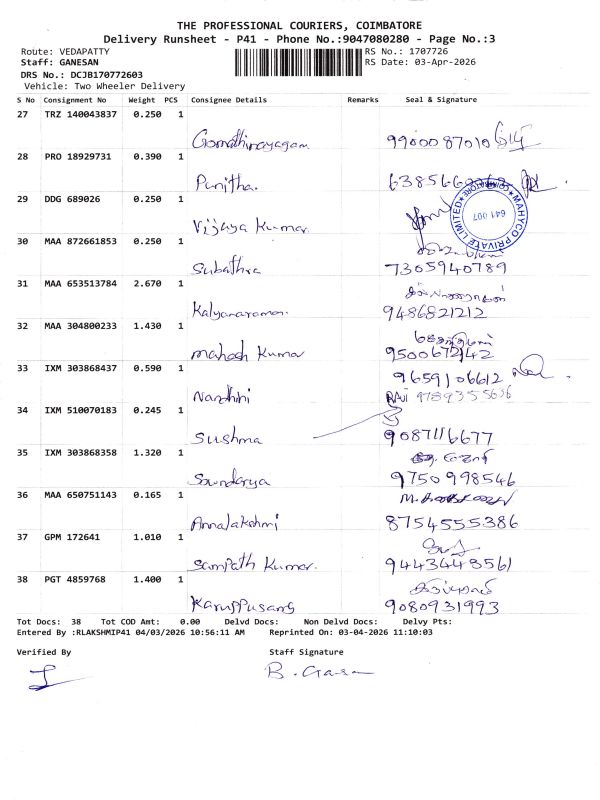 THE PROFESSIONAL COURIERS, COIMBATORE
Delivery Runsheet - P41 - Phone No.:9047080280 - Page No.:3
Route: VEDAPATTY RS No.: 1707726
Staff: GANESAN RS Date: 03-Apr-2026
DRS No.: DCJB170772603
Vehicle: Two Wheeler Delivery
S No Consignment No Weight PCS Consignee Details Remarks Seal & Signature
27 TRZ 140043837 0.250 1
Gomathinayagam 9900087010
28 PRO 18929731 0.390 1
Punitha.
29 DDG 689026 0.250 1
MAHYCO PRIVATE LIMITED COIMBATORE 641 007
Vijaya Kumar
30 MAA 872661853 0.250 1
Subathra 7305940789
31 MAA 653513784 2.670 1
Kalyanaraman. 9486821212
32 MAA 304800233 1.430 1
Mahesh Kumar 9500672142
33 IXM 303868437 0.590 1
9659106612
Nandhini RAJ 9789355636
34 IXM 510070183 0.245 1
Sushma 9087116677
35 IXM 303868358 1.320 1
Soundarya 9750998546
36 MAA 650751143 0.165 1
Annalakshmi 8754555386
37 GPM 172641 1.010 1
Sampath Kumar. 9443448561
38 PGT 4859768 1.400 1
Karuppusamy 9080931993
Tot Docs: 38 Tot COD Amt: 0.00 Delvd Docs: Non Delvd Docs: Delvy Pts:
Entered By :RLAKSHMIP41 04/03/2026 10:56:11 AM Reprinted On: 03-04-2026 11:10:03
Verified By Staff Signature